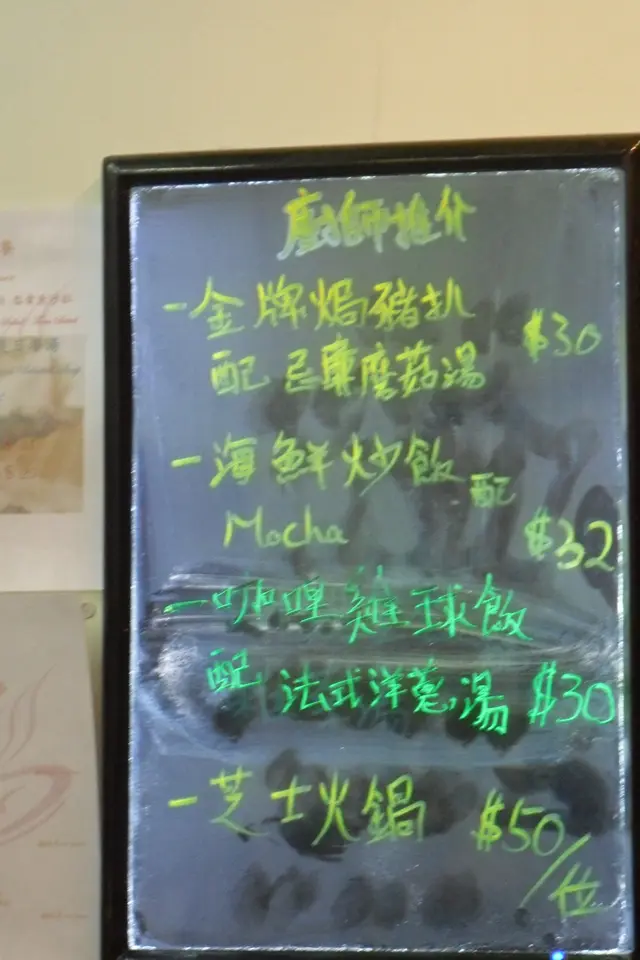 廚師推介
-金牌焗豬扒
配忌廉磨菇湯 $30
-海鮮炒飯配
Mocha $32
-咖哩雞球飯
配法式洋蔥湯 $30
-芝士火鍋 $50/位